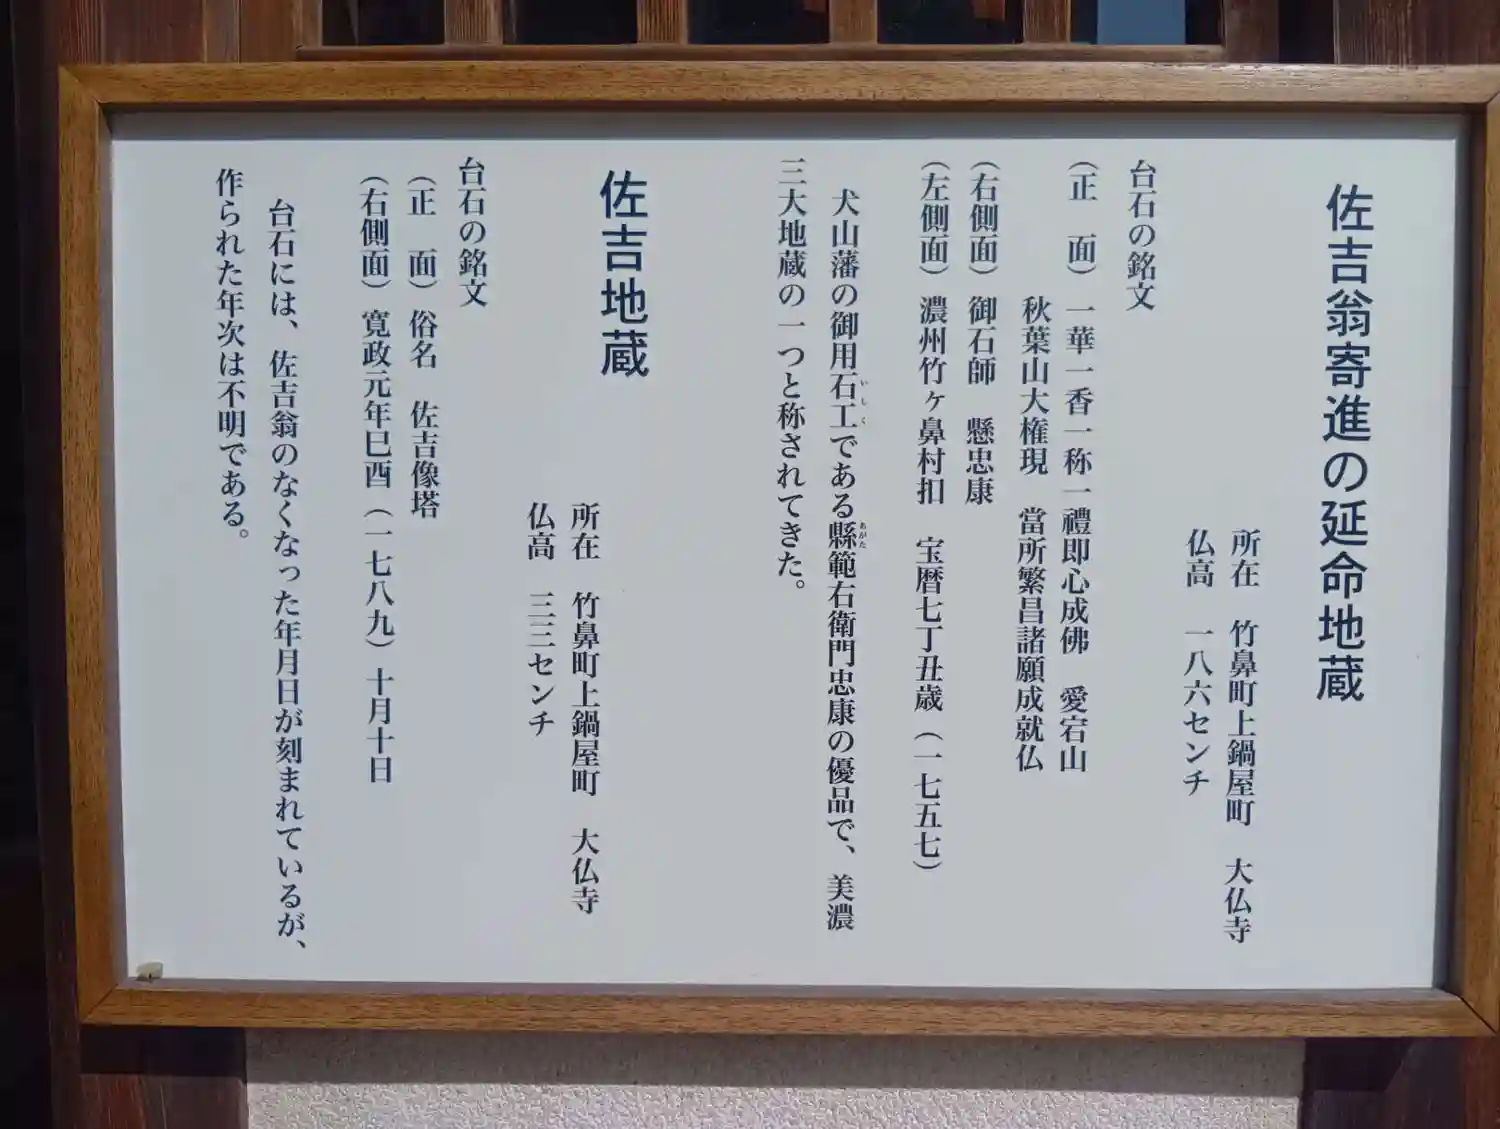 佐吉翁寄進の延命地蔵
所在　竹鼻町上鍋屋町　大仏寺
仏高　一八六センチ
台石の銘文
（正　面）一華一香一称一禮即心成佛　愛宕山
秋葉山大権現　當所繁昌諸願成就仏
（右側面）御石師　懸忠康
（左側面）濃州竹ヶ鼻村扣　宝暦七丁丑歳（一七五七）
犬山藩の御用石工（いしく）である縣（あがた）範右衛門忠康の優品で、美濃
三大地蔵の一つと称されてきた。
佐吉地蔵
所在　竹鼻町上鍋屋町　大仏寺
仏高　三三センチ
台石の銘文
（正　面）俗名　佐吉像塔
（右側面）寛政元年巳酉（一七八九）十月十日
台石には、佐吉翁のなくなった年月日が刻まれているが、
作られた年次は不明である。